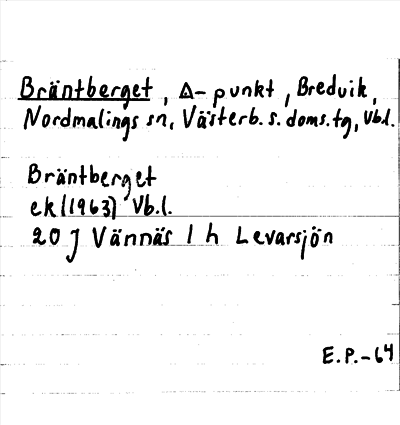 Bräntberget, Δ-punkt, Bredvik,
Nordmalings sn, Västerb. s. doms. tg, Vb.l.
Bräntberget
ek (1963) Vb.l.
20 J Vännäs 1 h Levarsjön
E.P.-64